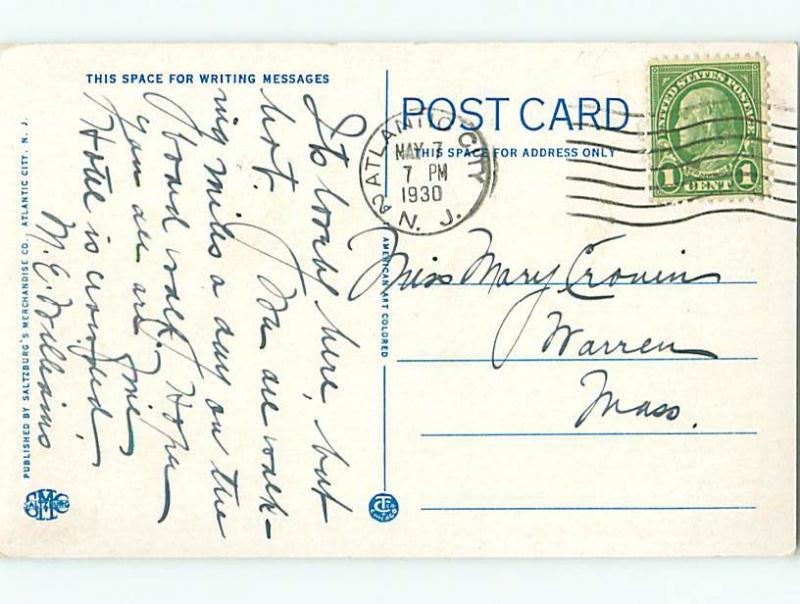 THIS SPACE FOR WRITING MESSAGES
Its lovely here, but
hot. We are walk-
ing miles a day on the
board walk. Hope
you all are fine
Hotel is crowded,
M. E. Williams
PUBLISHED BY SALTZBURG'S MERCHANDISE CO., ATLANTIC CITY, N. J.
AMERICAN ART COLORED
POST CARD
THIS SPACE FOR ADDRESS ONLY
ATLANTIC CITY
MAY 7
7 PM
1930
N. J.
UNITED STATES POSTAGE
1 CENT 1
Miss Mary Cronin
Warren
Mass.